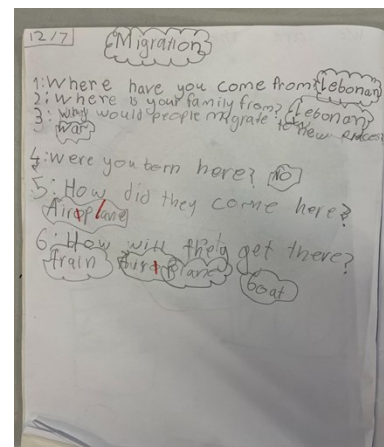 12/7
Migration
1: Where have you come from? Lebonan
2: Where is your family from? Lebonan
3: why would people migrate to new
war
4: Were you born here? no
5: How did they come here?
Airoplane
6: How will they get there?
train plane boat